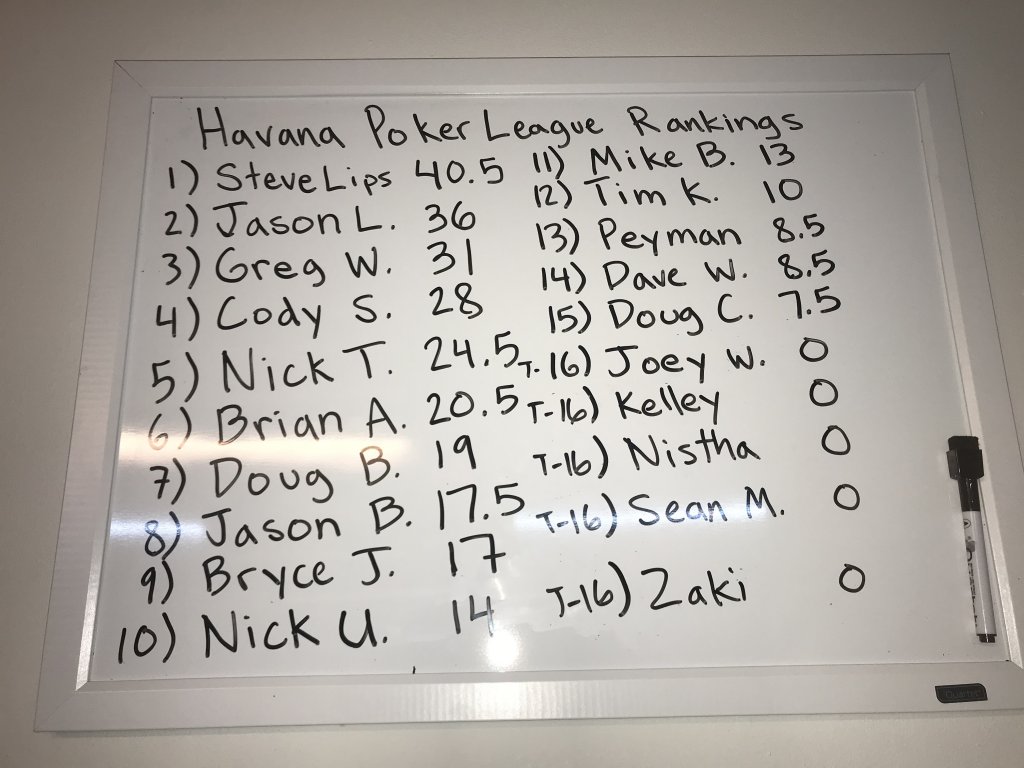 Havana Poker League Rankings
1) Steve Lips 40.5
2) Jason L. 36
3) Greg W. 31
4) Cody S. 28
5) Nick T. 24.5
6) Brian A. 20.5
7) Doug B. 19
8) Jason B. 17.5
9) Bryce J. 17
10) Nick U. 14
11) Mike B. 13
12) Tim K. 10
13) Peyman 8.5
14) Dave W. 8.5
15) Doug C. 7.5
T-16) Joey W. 0
T-16) Kelley 0
T-16) Nistha 0
T-16) Sean M. 0
T-16) Zaki 0
Quartet